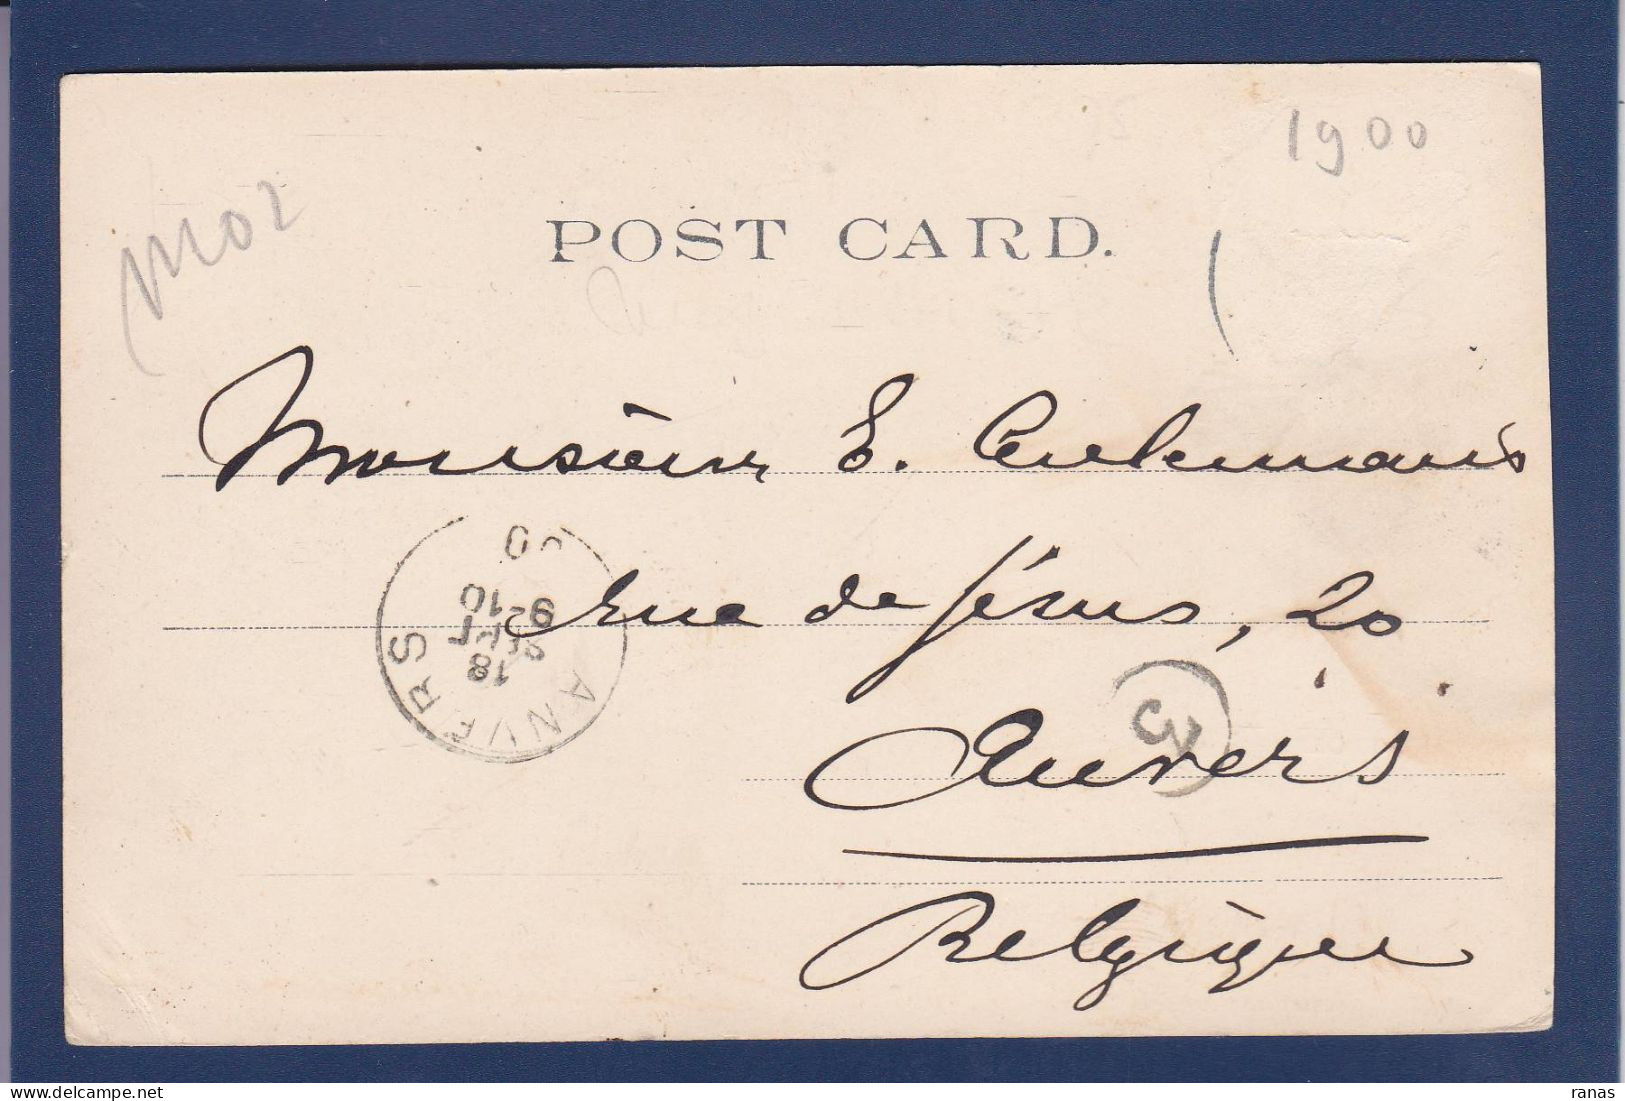 1900
POST CARD.
Monsieur E. Ceulemans
rue de Jésus, 20
Anvers
Belgique
ANVERS
18
SEPT
9-10
00
3
ranas